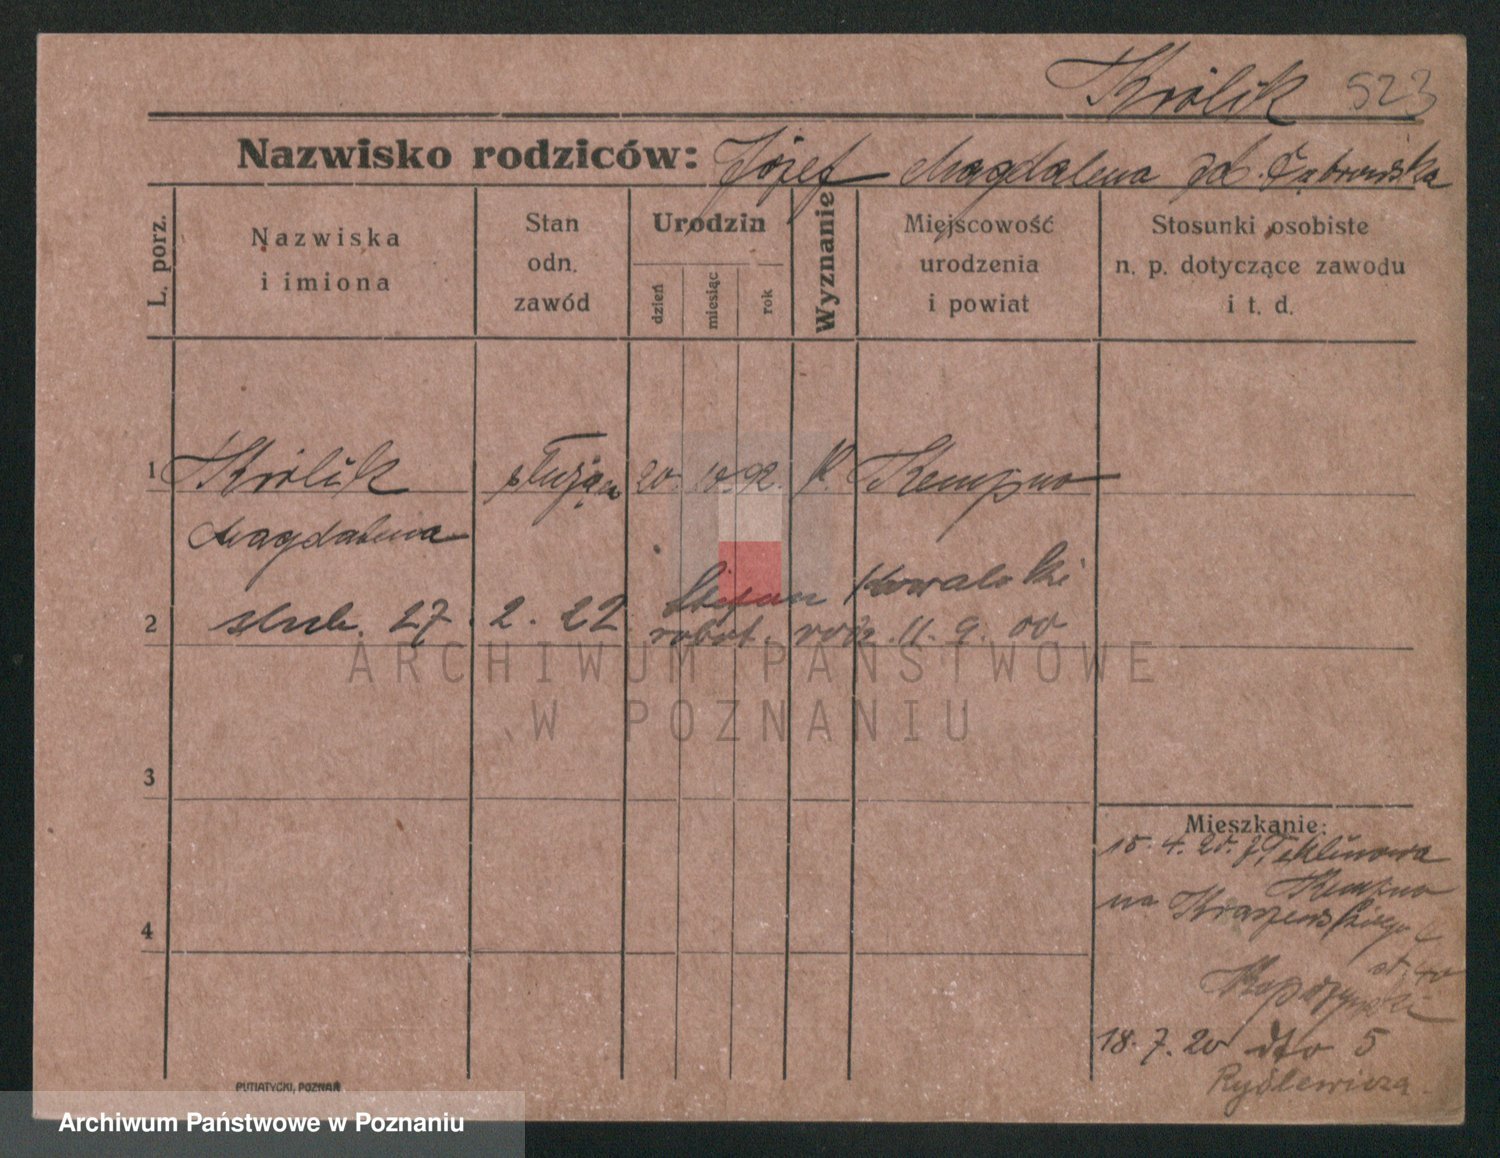 Królik 523
Nazwisko rodziców: Józef Magdalena zd. Dąbrowska
L. porz.
Nazwiska
i imiona
Stan
odn.
zawód
Urodzin
dzień
miesiąc
rok
Wyznanie
Miejscowość
urodzenia
i powiat
Stosunki osobiste
n. p. dotyczące zawodu
i t. d.
1 Królik służąca 20. 10. 92. K. Kempno
Magdalena
Stefan Kowalski
2 ślub. 27. 2. 22 robot. rodz. 11. 9. 00
ARCHIWUM PAŃSTWOWE
W POZNANIU
3
Mieszkanie:
15. 4. 20. z Teklinowa
Kempno
na Kraszewskiego
4
18. 7. 20 dto 5
Rydlewicza
PUTIATYCKI, POZNAŃ
Archiwum Państwowe w Poznaniu